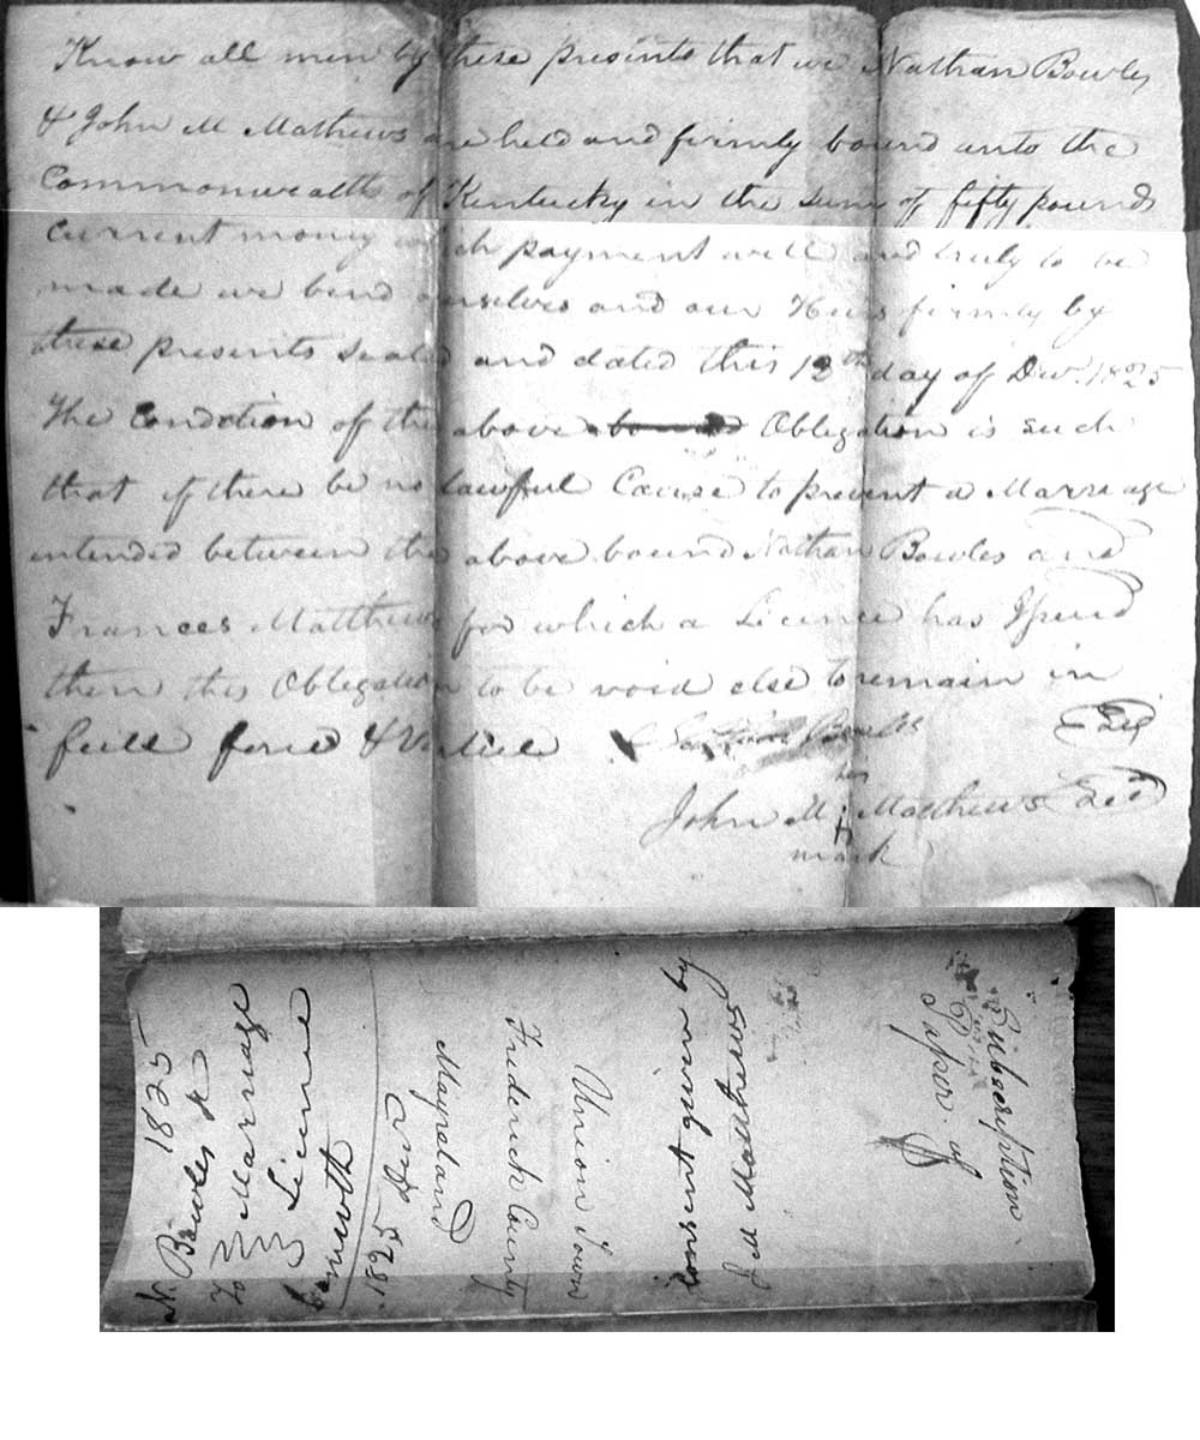 Know all men by these presents that we Nathan Bowles
& John M Mathews are held and firmly bound unto the
Commonwealth of Kentucky in the sum of fifty pounds
current money which payment well and truly to be
made we bind ourselves and our Heirs firmly by
these presents sealed and dated this 12th day of Dec. 1825
The Condition of the above bound Obligation is such
that if there be no lawful Cause to prevent a Marriage
intended between the above bound Nathan Bowles and
Frances Matthews for which a Licence has Issued
then this Obligation to be void else to remain in
full force & Virtue Bowles
his
John M. Matthews
mark
1825
N. Bowles &
To Marriage
Licence
1825 Dec
Mayraland
Frederick County
Union Town
consent given by
Mathews
Subscription
Paper of